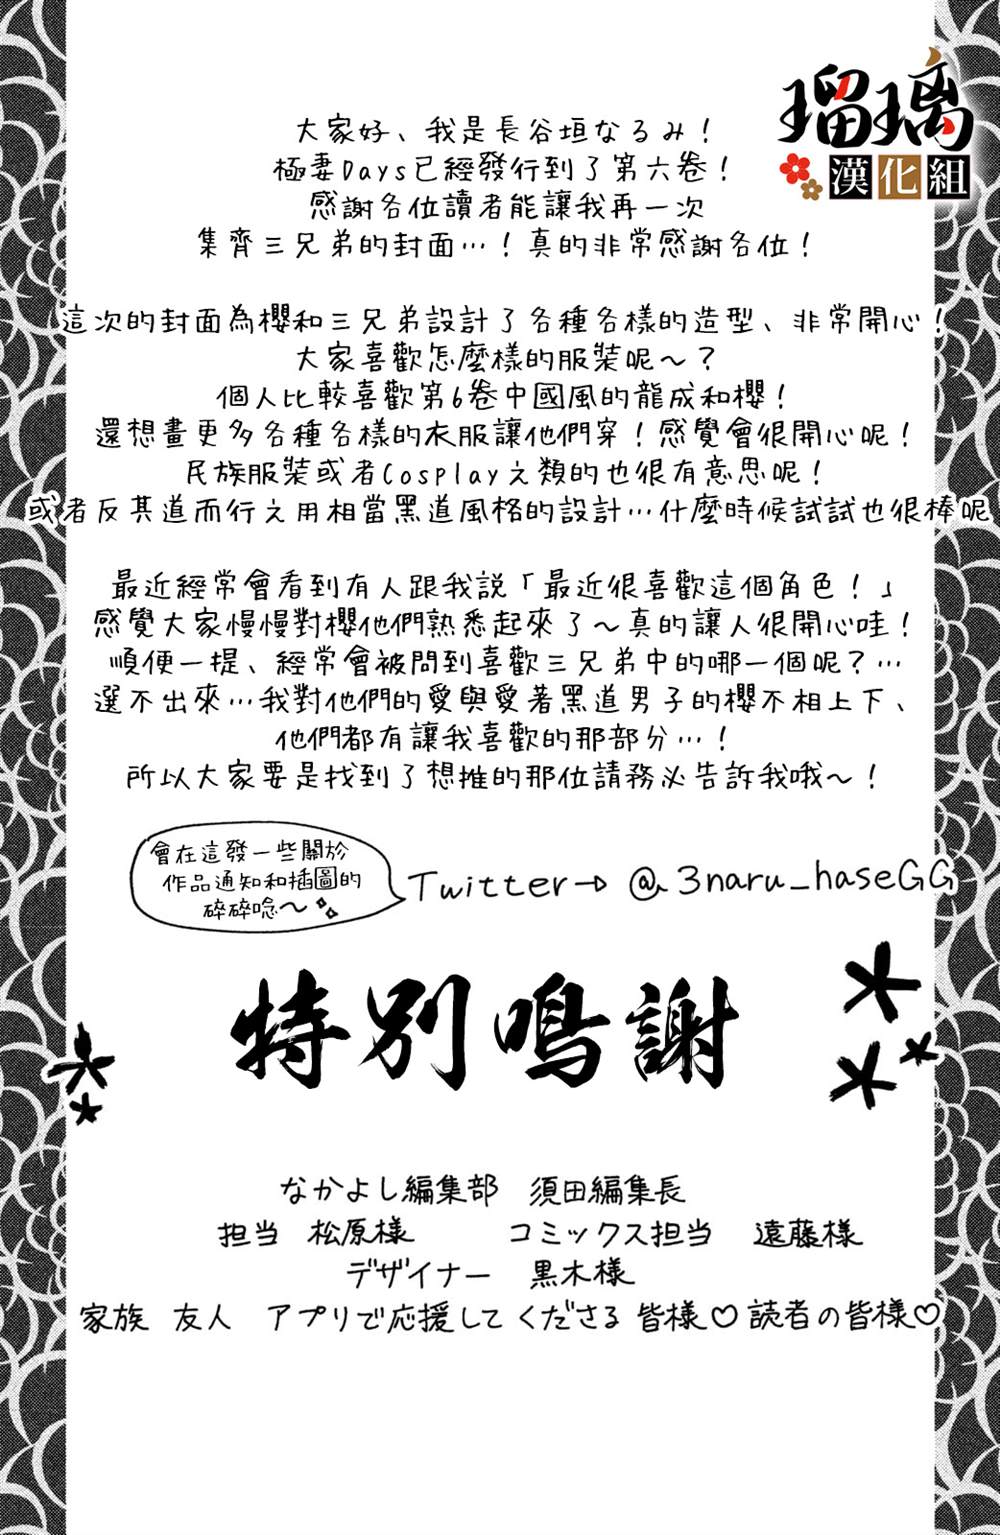 瑠璃
漢化組
大家好、我是長谷垣なるみ！
極妻Days已經發行到了第六卷！
感謝各位讀者能讓我再一次
集齊三兄弟的封面…！真的非常感謝各位！
這次的封面為櫻和三兄弟設計了各種各樣的造型、非常開心！
大家喜歡怎麼樣的服裝呢～？
個人比較喜歡第6卷中國風的龍成和櫻！
還想畫更多各種各樣的衣服讓他們穿！感覺會很開心呢！
民族服裝或者Cosplay之類的也很有意思呢！
或者反其道而行之用相當黑道風格的設計…什麼時候試試也很棒呢
最近經常會看到有人跟我說「最近很喜歡這個角色！」
感覺大家慢慢對櫻他們熟悉起來了～真的讓人很開心哇！
順便一提、經常會被問到喜歡三兄弟中的哪一個呢？…
選不出來…我對他們的愛與愛著黑道男子的櫻不相上下、
他們都有讓我喜歡的那部分…！
所以大家要是找到了想推的那位請務必告訴我哦～！
會在這發一些關於
作品通知和插圖的
碎碎唸～
Twitter→ @3naru_haseGG
特別鳴謝
なかよし編集部 須田編集長
担当 松原様 コミックス担当 遠藤様
デザイナー 黒木様
家族 友人 アプリで応援してくださる皆様♡ 読者の皆様♡